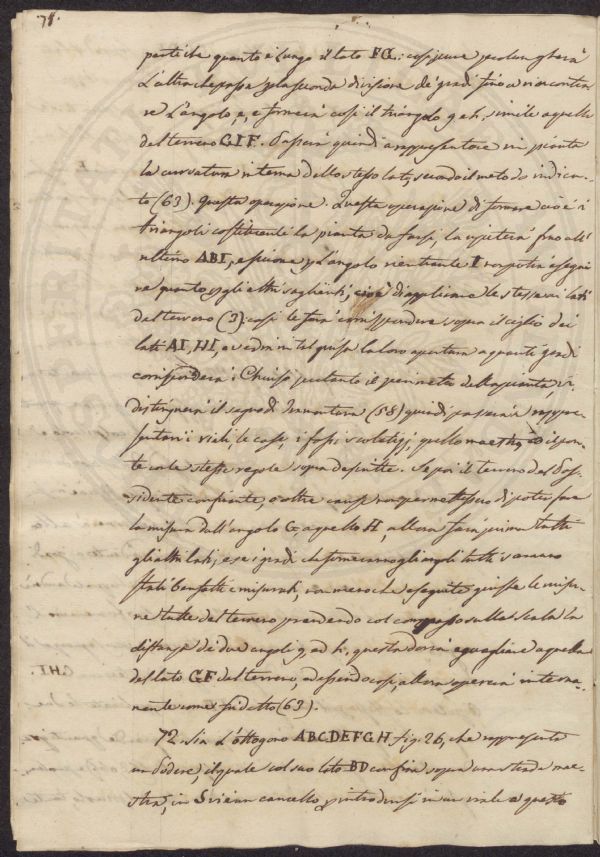 78.
parti che quanto è lungo il lato FG: così pure prolungherà
l'altra che passa p la seconda divisione de' gradi fino a rincontra
re l'angolo, e formerà così il triangolo g a h, simile a quello
del terreno GIF. Passerà quindi a rappresentare in pianta
la curvatura interna dello stesso lato, secondo il metodo indica
to (63). Questa operazione. Questa operazione di formare cioè i
triangoli costituenti la pianta da farsi, la ripeterà fino all'
ultimo ABI, e siccome p l'angolo rientrante I non potrà esegui
re quanto p gli altri saglienti, di applicare le stesse ai lati
del terreno (3). così le farà corrispondere sopra il ciglio dei
lati AI, HI, e vedrà in tal guisa la loro apertura a quanti gradi
corrisponderà: Chiuso pertanto il perimetro della pianta, vi
distinguerà il segno di (58) quindi passerà a rappre
sentarvi i viali, le case, i fossi scolatizj, quello il pon
te con le stesse regole sopra descritte. Se poi il terreno del Pos
sidente confinante, o altre cause non permettessero di poter fare
la misura dall'angolo G, a quello H, allora farà prima tutti
gli altri lati; e se i gradi che formeranno gli angoli tutti saranno
stati ben fatti e misurati, non meno che eseguite giuste le misu
re tutte del terreno prendendo col compasso sulla scala la
distanza de' due angoli g, ad h, questa dovrà eguagliare a quella
del lato GF del terreno, ed essendo così, allora opererà interna
mente come fu detto (63).
72. Sia l'ottagono ABCDEFGH fig. 26, che rappresenta
un Podere, il quale col suo lato BD confina sopra una strada mae
stra, in S vi è un cancello p introdursi in un viale a questo
GHI.